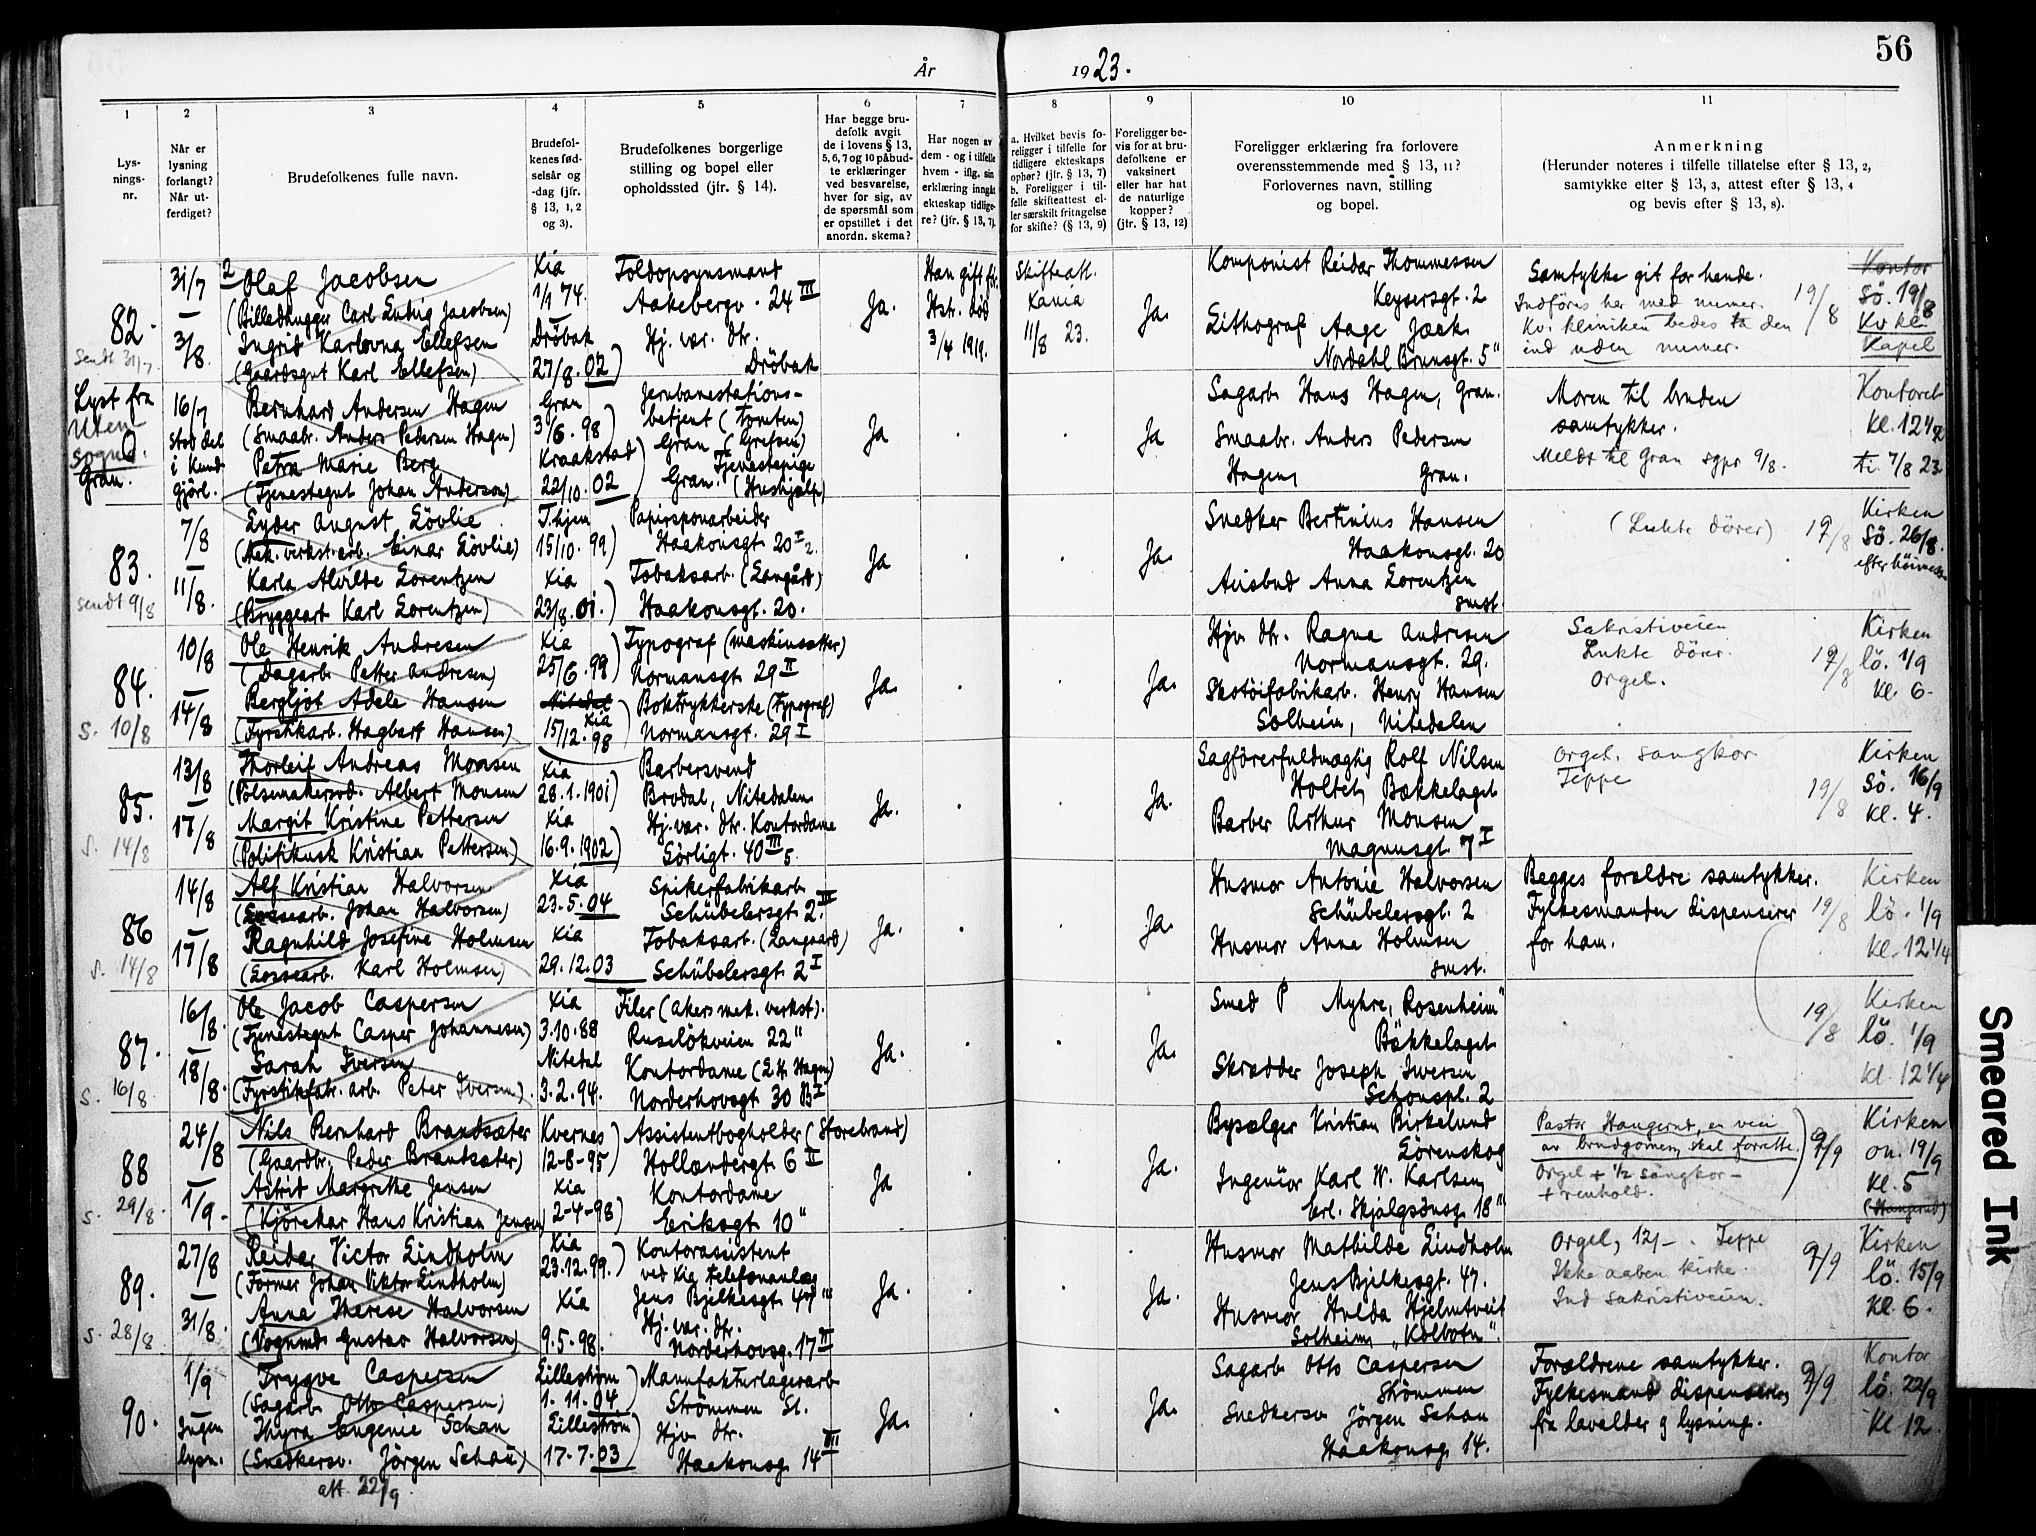 56
År 1923.
1
Lys-
nings-
nr.
2
Når er
lysning
forlangt?
Når ut-
ferdiget?
3
Brudefolkenes fulle navn.
4
Brudefol-
kenes fød-
selsår og
-dag (jfr.
§ 13, 1, 2
og 3).
5
Brudefolkenes borgerlige
stilling og bopel eller
opholdssted (jfr. § 14).
6
Har begge bru-
defolk avgit
de i lovens § 13,
5, 6, 7 og 10 påbud-
te erklæringer
ved besvarelse,
hver for sig, av
de spørsmål som
er opstillet i det
anordn. skema?
7
Har nogen av
dem - og i tilfelle
hvem - iflg. sin
erklæring inngått
ekteskap tidlige-
re? (jfr. § 13, 7).
8
a. Hvilket bevis fo-
religger i tilfelle for
tidligere ekteskaps
ophør? (jfr. § 13, 7)
b. Foreligger i til-
felle skifteattest el-
ler særskilt fritagelse
for skifte? (§ 13, 9)
9
Foreligger be-
vis for at bru-
defolkene er
vaksinert
eller har hat
de naturlige
kopper?
(jfr. § 13, 12)
10
Foreligger erklæring fra forlovere
overensstemmende med § 13, 11?
Forlovernes navn, stilling
og bopel.
11
Anmerkning
(Herunder noteres i tilfelle tillatelse efter § 13, 2,
samtykke efter § 13, 3, attest efter § 13, 4
og bevis efter § 13, 8).
82.
Sendt 31/7.
31/7
—
3/8.
2 Olaf Jacobsen
(Billedhugger Carl Ludvig Jacobsen)
Ingrid Karlovna Ellefsen
(Gaardsgut Karl Ellefsen)
Kia
1/1 74.
Dröbak
27/8. 02)
Toldopsynsmand
Aakebergv. 24 III
Hj. vær. dtr.
Dröbak
Ja.
Han gift fr.
Hstr. död
3/4 1919.
Skifteatt.
Kania
11/8 23.
Ja.
Komponist Reidar Thommessen
Keysersgt. 2
Lithograf Aage Jack
Nordahl Brunsgt. 5"
Samtykke git for hende.
Indföres her med numer.
Kv. kliniken bedes ta den
ind uden numer.
19/8
Kontor
Sö. 19/8
Kv kl.
Kapel
Lyst fra
Uten-
sogns.
Gran.
16/7
stod del
i Kund-
gjörl.
Bernhard Andersen Hagen
(Smaabr. Anders Pedersen Hagen)
Petra Marie Berg
(Tjenestegut Johan Anderson)
Gran
3/6. 98)
Kraakstad
22/10. 02
Jernbanestations-
betjent (Tomten)
Gran (Grefsen)
Tjenestepige
Gran. (Hushjælp)
Ja
Ja
Sagarb. Hans Hagen, Gran.
Smaabr. Anders Pedersen
Hagen, Gran.
Moren til bruden
samtykker.
Meldt til Gran sgpr 9/8.
Kontoret
kl. 12 1/2
ti. 7/8 23.
83.
sendt 9/8
7/8
—
11/8.
Eyder August Lövlie
(Mek. verkst. arb. Einar Lövlie)
Karla Alvilde Lorentzen
(Bryggearb Karl Lorentzen)
T.hjem
15/10. 99)
Kia
23/8. 01.)
Papirsponarbeider
Haakonsgt. 20 I 2.
Tobaksarb. (Langård)
Haakonsgt. 20.
Ja
Ja.
Snedker Bertinius Hansen
Haakonsgt. 20
Avisbud Anna Lorentzen
smst.
(Lukte dörer)
19/8
Kirken
Sö. 26/8.
efter höimesse
84.
S. 10/8
10/8
—
14/8
Ole Henrik Andresen
(Dagarb. Petter Andresen)
Bergljot Adele Hansen
(Fyrstikarb. Hagbart Hansen)
Kia
25/6. 99)
Nitedal
Kia
15/12. 98
Typograf (maskinsætter)
Normansgt. 29 II
Boktrykkerske (Typograf)
Normansgt. 29 I
Ja.
Ja.
Hjv. dtr. Ragna Andresen
Normansgt. 29.
Skotöifabrikarb. Henry Hansen
Solheim, Nitedalen
Sakristiveien
Lukte dörer.
Orgel.
19/8
Kirken
lö. 1/9
kl. 6.
85.
S. 14/8
13/8
—
17/8
Thorleif Andreas Monsen
(Pölsemakersvd. Albert Monsen
Margit Kristine Pettersen
(Politikusk Kristian Pettersen)
Kia
28.1.1901)
Kia
16.9.1902)
Barbersvend
Brodal, Nitedalen
Hj. vær. dtr. Kontordame
Sörligt. 40 III 5.
Ja.
Ja.
Sagförerfuldmægtig Rolf Nilsen
Holtet, Bækkelaget
Barber Arthur Monsen
Magnusgt. 7 I
Orgel. sangkor
Teppe
19/8
Kirken
Sö. 16/9
kl. 4.
86
S. 14/8
14/8
—
17/8
Alf Kristian Halvorsen
(Lossearb. Johan Halvorsen)
Ragnhild Josefine Holmsen
(Lossearb. Karl Holmsen)
Kia
23.5.04
Kia
29.12.03
Spikerfabrikarb.
Schübelersgt. 2 IV
Tobaksarb. (Langaard)
Schübelersgt. 2 I
Ja.
Ja.
Husmor Antonie Halvorsen
Schübelersgt. 2
Husmor Anna Holmsen
smst.
Begges forældre samtykker.
Fylkesmanden dispenserer
for ham.
19/8
Kirken
lö. 1/9
kl. 12 1/4
87.
S. 16/8
16/8.
—
18/8.
Ole Jacob Caspersen
(Tjenestegut Casper Johannesen)
Sarah Iversen
(Fyrstikfabr. arb. Peter Iversen)
Kia
3.10.88
Nitedal
3.2.94.
Filer (Akers mek. verkst).
Ruselökveien 22"
Kontordame (2 H. Hagen)
Norderhovsgt 30 B I
Ja.
Ja.
Smed P Myhre, "Rosenheim"
Bækkelaget
Skrædder Joseph Iversen
Schouspl. 2
19/8
Kirken
lö. 1/9
kl. 12 1/4
88
S. 29/8.
24/8
—
1/9.
Nils Bernhard Brandsæter
(Gaardbr. Peder Brandsæter)
Astrid Margrethe Jensen
(Kjörekar Hans Kristian Jensen)
Kvernes
12-8-95)
Kia
2-4-98)
Assistentbogholder (Storebrand)
Hollændergt. 6 II
Kontordame
Eriksgt. 10"
Ja
Ja.
Bysælger Kristian Birkelund
Lörenskog
Ingeniör Karl W. Karlsen,
Erl. Skjalgsönsg. 18"
Pastor Haugerud, en ven
av brudgomen, skal forrette.
Orgel + 1/2 sangkor -
+ renhold.
9/9
Kirken
on. 19/9
kl. 5
(Haugerud)
89.
S. 28/8
27/8
—
31/8.
Reidar Victor Lindholm
(Former Johan Viktor Lindholm)
Anna Therese Halvorsen
(Vognmd Gustav Halvorsen)
Kia
23.12.99.)
Kia
9.5.98.
Kontorassistent
ved Kia telefonanlæg
Jens Bjelkesgt. 47"
Hj. vær. dtr.
Norderhovsg. 17 III
Ja.
Ja.
Husmor Mathilde Lindholm
Jens Bjelkesgt. 47.
Husmor Hulda Hjelmtveit
Solheim, "Kolbotn".
Orgel, 12,-. Teppe
Ikke aaben kirke.
Ind sakristiveien.
9/9
Kirken
lö. 15/9
Kl. 6.
90.
1/9
Ingen
lysn.
Trygve Caspersen
(Sagarb. Otto Caspersen)
Thyra Eugenie Schau
(Snedkersv. Jörgen Schau)
Lilleström
1.11.04)
Lilleström
17.7.03
Manufakturlagerarb
Strömmen St.
Hjv. dtr.
Haakonsg. 14 III
Ja.
Ja.
Sagarb Otto Caspersen
Strömmen
Snedkersv. Jörgen Schau
Haakonsg. 14.
Forældrene samtykker.
Fylkesmand dispenserer
fra lavalder og lysning.
9/9
Kontor
lö. 22/9
Kl 12.
att. 22/9.
Smeared Ink